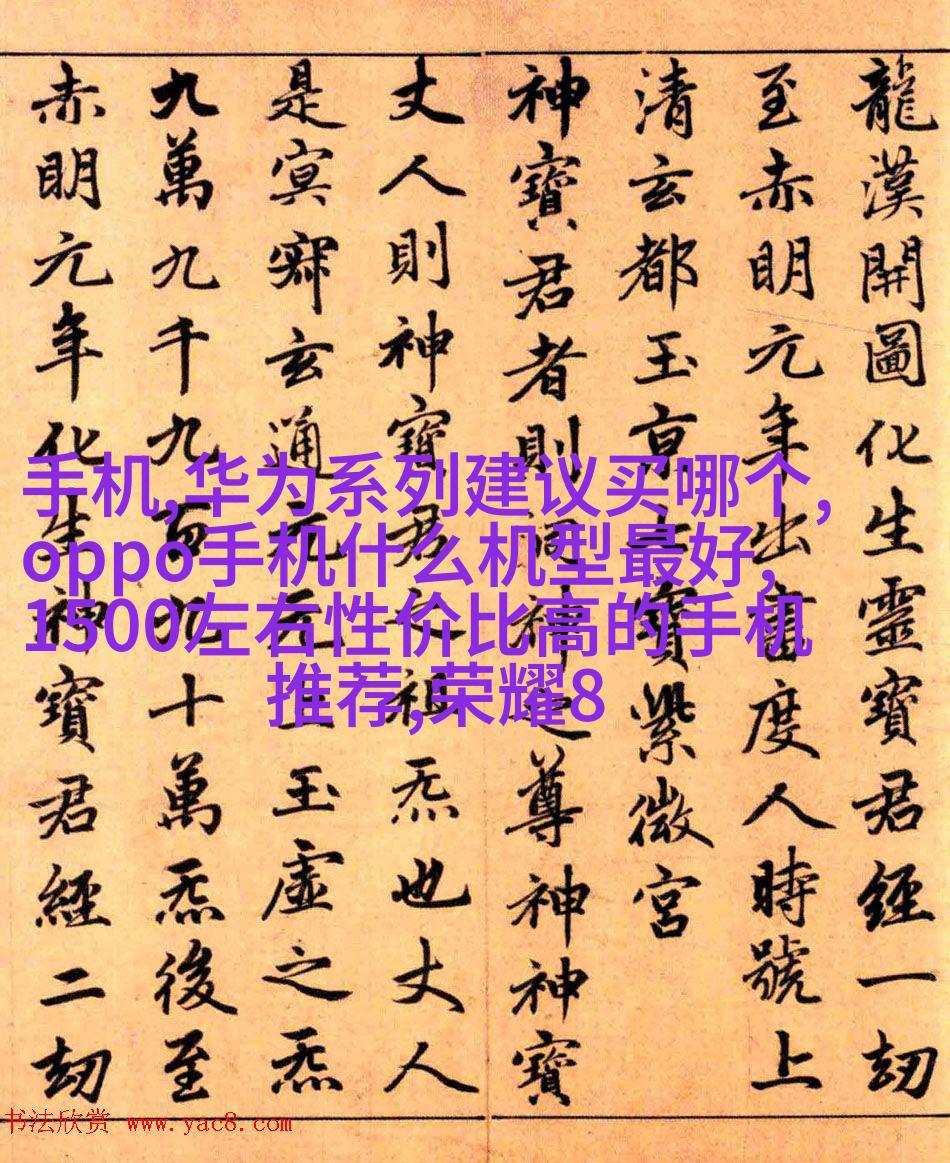 龍漢開圖化生靈寶君經一劫
至赤明元年出書度人時號上
清玄都玉京七寶紫微宮
神寶君者則洞神之尊神神寶
丈人則神神寶君之祖炁也丈人
是冥寂玄通元无上玉虛之炁
九萬九千九百九十萬炁後至
赤明元年化生神寶君經二劫
手机,华为系列建议买哪个,
oppo手机什么机型最好,
1500左右性价比高的手机
推荐,荣耀8
书法欣赏 www.yac8.com